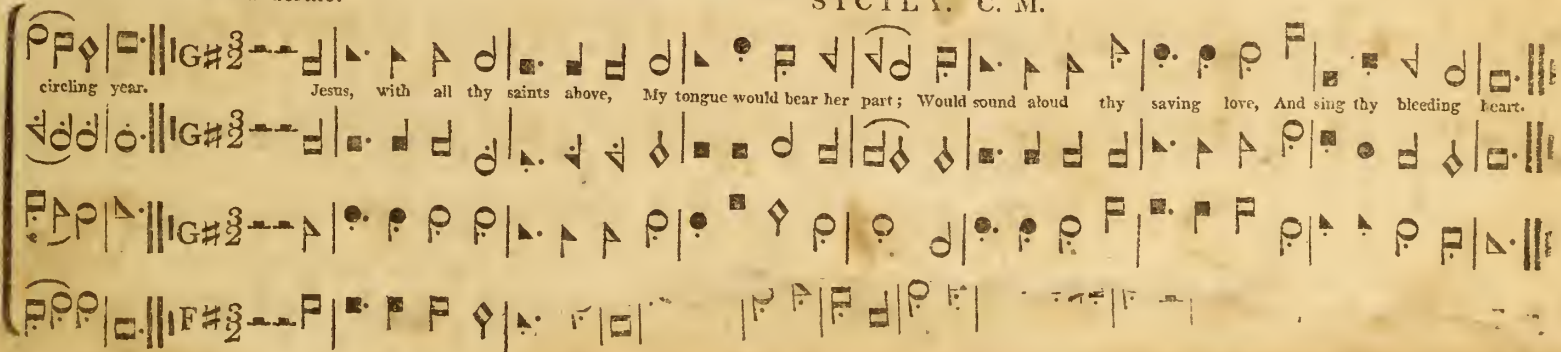 SICILY. C. M.
circling year. Jesus, with all thy saints above, My tongue would bear her part; Would sound aloud thy saving love, And sing thy bleeding heart.
G#3/2
G#3/2
G#3/2
F#3/2